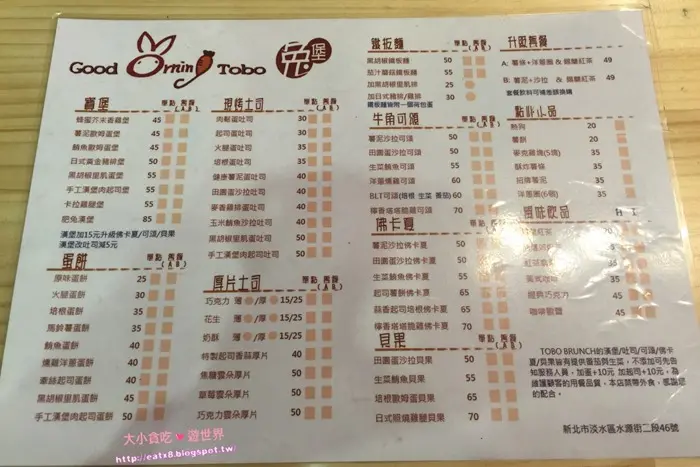 Good Ornin Tobo
兔堡
寶堡 單點 套餐 (A)(B)
蜂蜜芥末香雞堡 45
薯泥歐姆蛋堡 45
鮪魚歐姆蛋堡 45
日式黃金豬排堡 50
黑胡椒里肌蛋堡 55
手工漢堡肉起司堡 55
卡拉雞腿堡 55
肥兔漢堡 85
漢堡加15元升級佛卡夏/可頌/貝果
漢堡改吐司減5元
蛋餅 單點 套餐 (A)(B)
原味蛋餅 25
火腿蛋餅 30
培根蛋餅 35
馬鈴薯蛋餅 40
鮪魚蛋餅 40
燻雞洋蔥蛋餅 40
牽絲起司蛋餅 40
黑胡椒里肌蛋餅 45
手工漢堡肉起司蛋餅 50
現烤土司 單點 套餐 (A)(B)
肉鬆蛋吐司 30
起司蛋吐司 30
火腿蛋吐司 30
培根蛋吐司 35
健康薯泥蛋吐司 40
田園蛋沙拉吐司 40
麥香雞排蛋吐司 40
玉米鮪魚沙拉吐司 40
黑胡椒里肌蛋吐司 50
手工漢堡肉起司蛋吐司 50
厚片土司 單點 套餐 (A)(B)
巧克力 薄/厚 15/25
花生 薄/厚 15/25
奶酥 薄/厚 15/25
特製起司香蒜厚片 40
焦糖雲朵厚片 50
草莓雲朵厚片 50
巧克力雲朵厚片 50
鐵板麵 單點 套餐
黑胡椒鐵板麵 50
茄汁蘑菇鐵板麵 50
加黑胡椒里肌排 25
加日式豬排/雞排 30
鐵板麵皆附一個荷包蛋
牛角可頌 單點 套餐 (A)(B)
薯泥沙拉可頌 50
田園蛋沙拉可頌 50
生菜鮪魚可頌 55
洋蔥燻雞可頌 60
BLT可頌(培根 生菜 蕃茄) 60
檸香塔塔脆雞可頌 70
佛卡夏 單點 套餐 (A)(B)
薯泥沙拉佛卡夏 50
田園蛋沙拉佛卡夏 50
生菜鮪魚佛卡夏 55
起司薯餅佛卡夏 60
蒜香起司培根佛卡夏 65
檸香塔塔脆雞佛卡夏 70
貝果 單點 套餐 (A)(B)
田園蛋沙拉貝果 50
生菜鮪魚貝果 55
黑胡椒培根歐姆蛋貝果 60
日式照燒雞腿貝果 70
升級套餐
A: 薯條+洋蔥圈 & 錫蘭紅茶 49
B: 薯泥+沙拉 & 錫蘭紅茶 49
套餐飲料可補差額換購
點心小品
熱狗 20
薯餅 20
麥克雞塊(5塊) 35
酥炸薯條 35
招牌薯泥 35
洋蔥圈(6個) 35
風味飲品
經典巧克力 45
咖啡歐蕾 55
TOBO BRUNCH的漢堡/吐司/可頌/佛卡
夏/貝果皆有提供番茄與生菜，不添加可先告
知服務人員，加蛋+10元 加起司+10元，為
維護顧客的用餐品質，本店禁帶外食，感謝您
的配合。
新北市淡水區水源街二段46號
大小貪吃♥遊世界
http://eatx8.blogspot.tw/